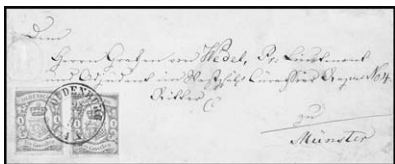 Dem
Herrn Grafen von Wedel, Pr. Lieutenant
und Adjudant im Westphäl. Cürassier Regmt No 4.
Ritter
zu
Münster
OLDENBURG